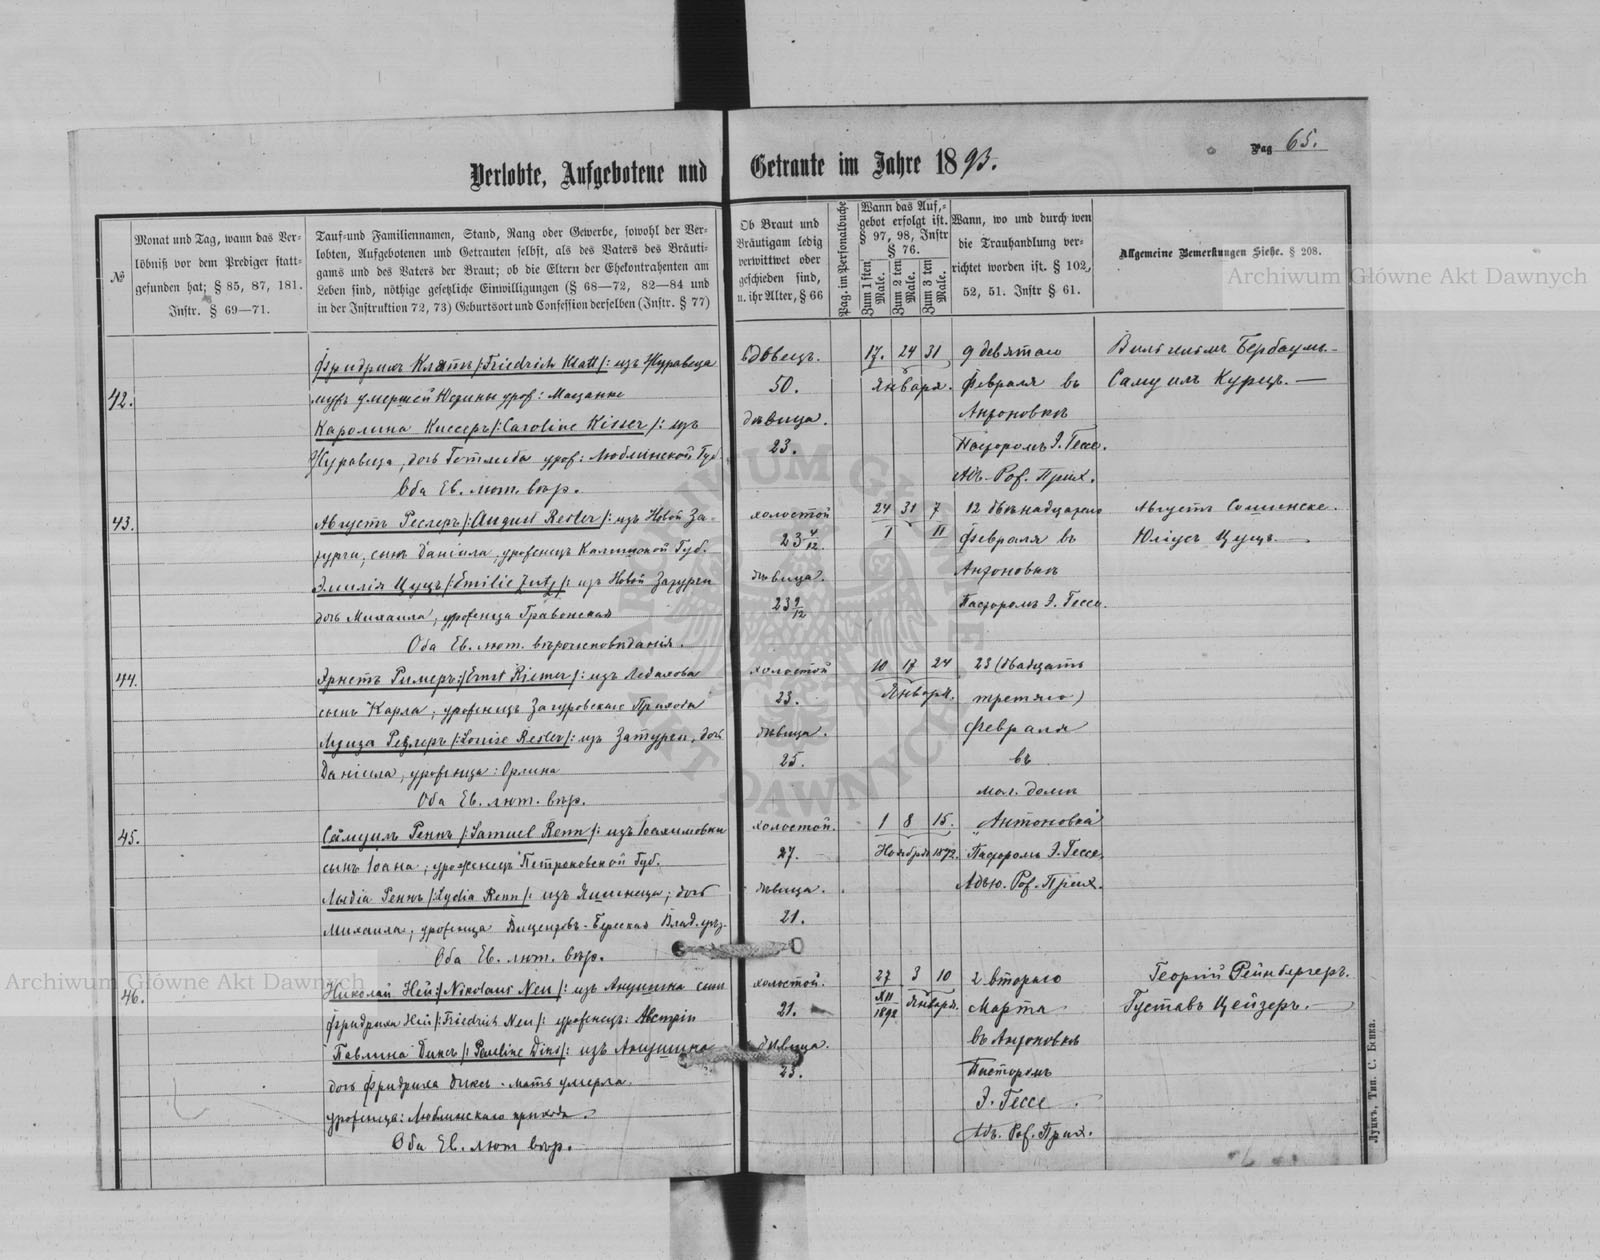 Pag 65.
Verlobte, Aufgebotene und Getraute im Jahre 1893.
№
Monat und Tag, wann das Ver-
löbniß vor dem Prediger statt-
gefunden hat; § 85, 87, 181.
Instr. § 69—71.
Tauf- und Familiennamen, Stand, Rang oder Gewerbe, sowohl der Ver-
lobten, Aufgebotenen und Getrauten selbst, als des Vaters des Bräuti-
gams und des Vaters der Braut; ob die Eltern der Ehekontrahenten am
Leben sind, nöthige gesetzliche Einwilligungen (§ 68—72, 82—84 und
in der Instruktion 72, 73) Geburtsort und Confession derselben (Instr. § 77)
Ob Braut und
Bräutigam ledig
verwittwet oder
geschieden sind,
u. ihr Alter, § 66
Pag. im Personalbuche
Wann das Auf-
gebot erfolgt ist.
§ 97, 98, Instr
§ 76.
Zum 1sten Male.
Zum 2 ten Male.
Zum 3 ten Male.
Wann, wo und durch wen
die Trauhandlung ver-
richtet worden ist. § 102,
52, 51. Instr § 61.
Allgemeine Bemerkungen Siehe. § 208.
Archiwum Główne Akt Dawnych
42.
Фридрихъ Клаттъ /:Friedrich Klatt/: изъ Журавеца
мужъ умершей Юстины урож:
Каролина Киссеръ /:Caroline Kisser/: изъ
Журавеца, дочь Готлиба урож: Люблинской Губ.
Оба Ев. лют. вѣр.
вдовецъ.
50.
дѣвица.
23.
17. 24 31
Января.
9 девятаго
Февраля въ
Антоновкѣ
Пасторомъ Э. Гессе.
Адъ. Рож. Прих.
Вильгельмъ Бербаумъ.
Самуилъ Курцъ. —
43.
Августъ Реслеръ /:August Resler/: изъ Новой За-
турги, сынъ Даніила, уроженецъ Калишской Губ.
Эмилія Цуцъ /:Emilie Zutz/: изъ Новой Затурги
дочь Михаила, уроженица
Оба Ев. лют. вѣроисповѣданія.
холостой
23 4/12.
дѣвица.
23 9/12
24 31 7
I II
12 двѣнадцатаго
Февраля въ
Антоновкѣ
Пасторомъ Э. Гессе.
Августъ
Юліусъ Цуцъ. —
44.
Эрнстъ Римеръ /:Ernst Riemer/: изъ Ледахова
сынъ Карла, уроженецъ Загуровскаго Прихода
Луиза Реслеръ /:Louise Resler/: изъ Затурги, дочь
Даніила, уроженица: Орлина
Оба Ев. лют. вѣр.
холостой
23.
дѣвица.
25.
10 17 24
Января.
23 (двадцать
третяго)
Февраля
въ
мол. домѣ
45.
Самуилъ Реннъ /:Samuel Renn/: изъ Іоахимовки
сынъ Іоана, уроженецъ Петроковской Губ.
Лидія Реннъ /:Lydia Renn/: изъ Яшенеца; дочь
Михаила, уроженица Влад. уѣз.
Оба Ев. лют. вѣр.
холостой.
27.
дѣвица.
21.
1 8 15.
Ноября 1892.
„Антоновка"
Пасторомъ Э. Гессе.
Адъю. Рож. Прих.
Archiwum Główne Akt Dawnych
46.
Николай Ней /:Nikolaus Neu/: изъ Анушина сынъ
Фридриха Ней /:Friedrich Neu/: уроженецъ: Австріи
Павлина Динсъ /:Pauline Dins/: изъ Анушина
дочь Фридриха Динсъ - мать умерла.
уроженица: Люблинскаго прихода.
Оба Ев. лют вѣр.
холостой.
21.
дѣвица.
23.
27 3 10
XII
1892
Января.
2 втораго
Марта
въ Антоновкѣ
Пасторомъ
Э. Гессе
Адъ. Рож. Прих.
Георгій Рейнбергеръ.
Густавъ Цейзеръ. —
Луцкъ, Тип. С. Бенка.